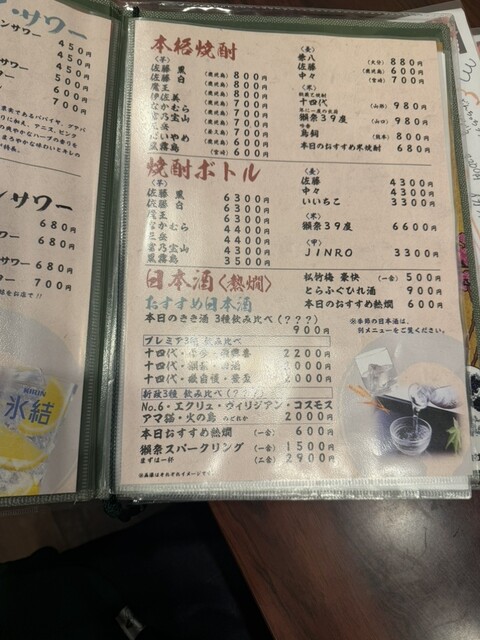 サワー
450円
450円
450円
500円
500円
600円
700円
サワー
680円
680円
680円
700円
KIRIN
氷結
本格焼酎
(芋)
佐藤 黒 (鹿児島) 800円
佐藤 白 (鹿児島) 800円
魔王 (鹿児島) 800円
伊佐美 (鹿児島) 700円
なかむら (鹿児島) 700円
富乃宝山 (鹿児島) 700円
700円
だいやめ (鹿児島) 600円
黒霧島 (宮崎) 600円
(麦)
兼八 (大分) 880円
佐藤 (鹿児島) 600円
中々 (宮崎) 700円
(米)
十四代 (山形) 980円
獺祭39度 (山口) 980円
鳥飼 (熊本) 800円
本日のおすすめ米焼酎 680円
焼酎ボトル
(芋)
佐藤 黒 6300円
佐藤 白 6300円
魔王 6300円
なかむら 4400円
三岳 4400円
富乃宝山 4300円
黒霧島 3500円
(麦)
佐藤 4300円
中々 4300円
いいちこ 3300円
(米)
獺祭39度 6600円
(甲)
JINRO 3300円
日本酒〈熱燗〉
松竹梅 豪快 (一合) 500円
とらふぐひれ酒 900円
本日のおすすめ熱燗 600円
おすすめ日本酒
本日のきき酒 3種飲み比べ(???)
900円
※季節の日本酒は、
別メニューをご覧ください。
プレミア3種 飲み比べ
十四代・ 2200円
十四代・ 2000円
十四代・ 2000円
新政3種 飲み比べ
No.6・エクリュ・ヴィリジアン・コスモス
アマ猫・火の鳥 のどれか 2000円
本日おすすめ熱燗 (一合) 600円
獺祭スパークリング (一合) 1500円
まずは一杯 (二合) 2900円
※画像はそれぞれイメージです。